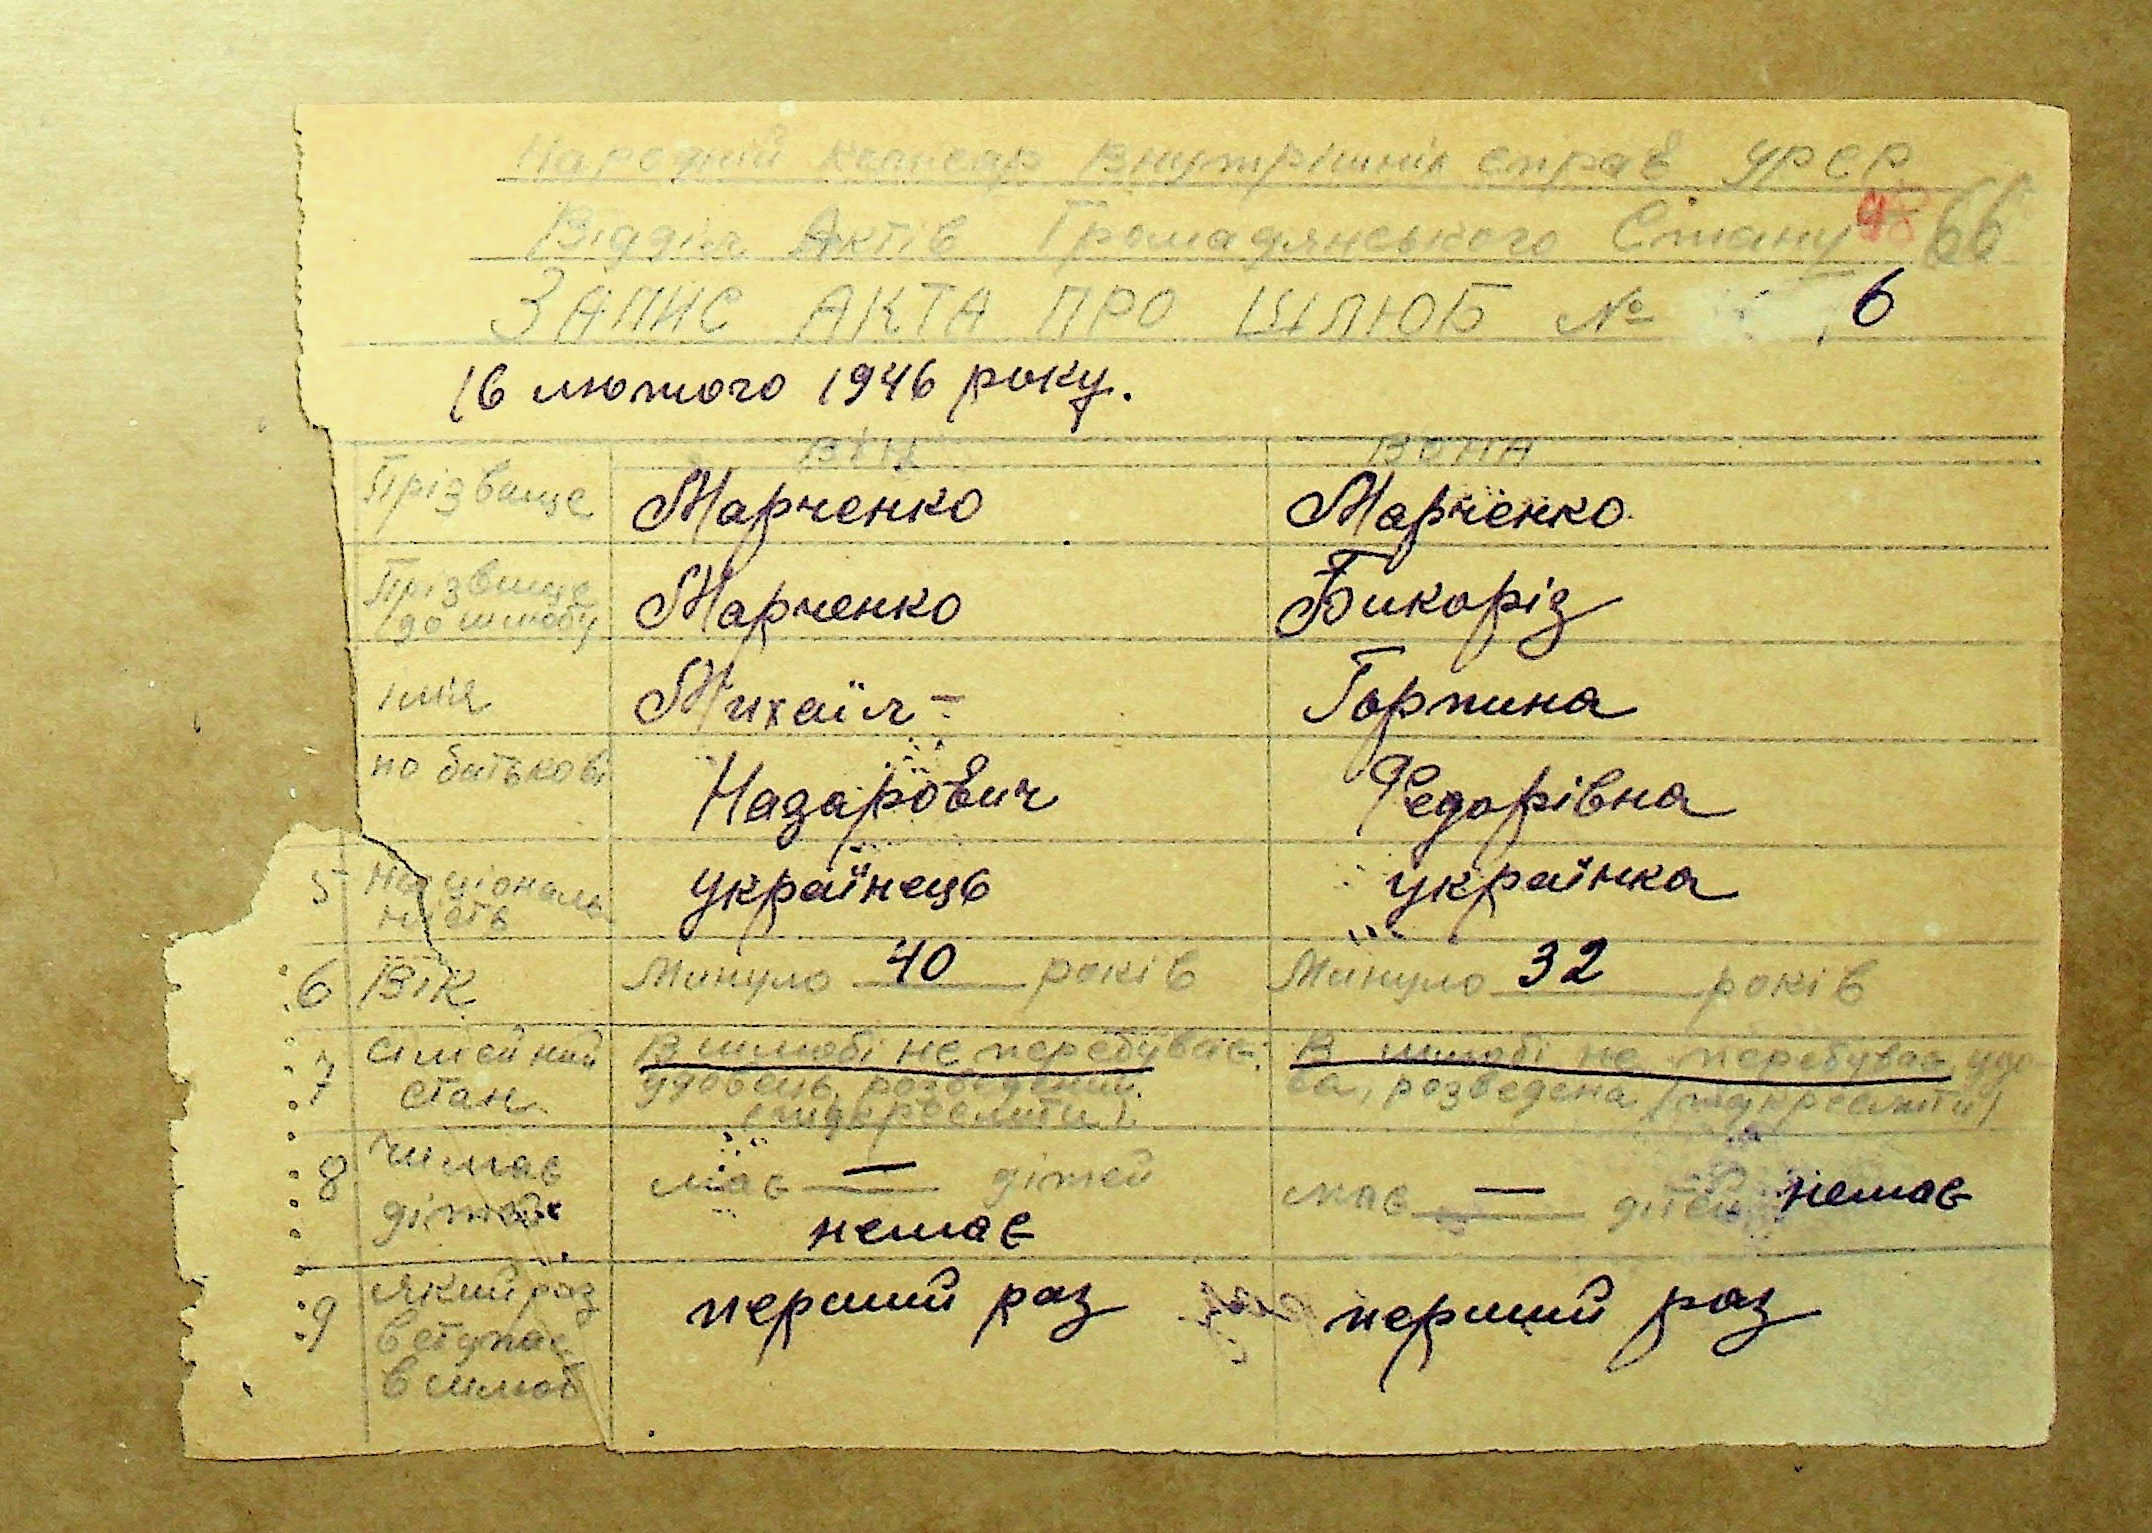 Народній комісар внутрішніх справ УРСР
98 66
Відділ Актів Громадянського Стану
ЗАПИС АКТА ПРО ШЛЮБ № 6
16 лютого 1946 року.
ВІН ВОНА
Прізвище Марченко Марченко
Прізвище до шлюбу Марченко Бикоріз
імʼя Михаїл- Горпина
по батькові Назарович Федорівна
5 Національність українець українка
6 Вік Минуло 40 років Минуло 32 років
7 сімейний стан В шлюбі не перебуває, удовець, розведений (підкреслити) В шлюбі не перебуває, удова, розведена (підкреслити)
8 чи має дітей має — дітей немає має — дітей немає
9 який раз вступає в шлюб перший раз перший раз